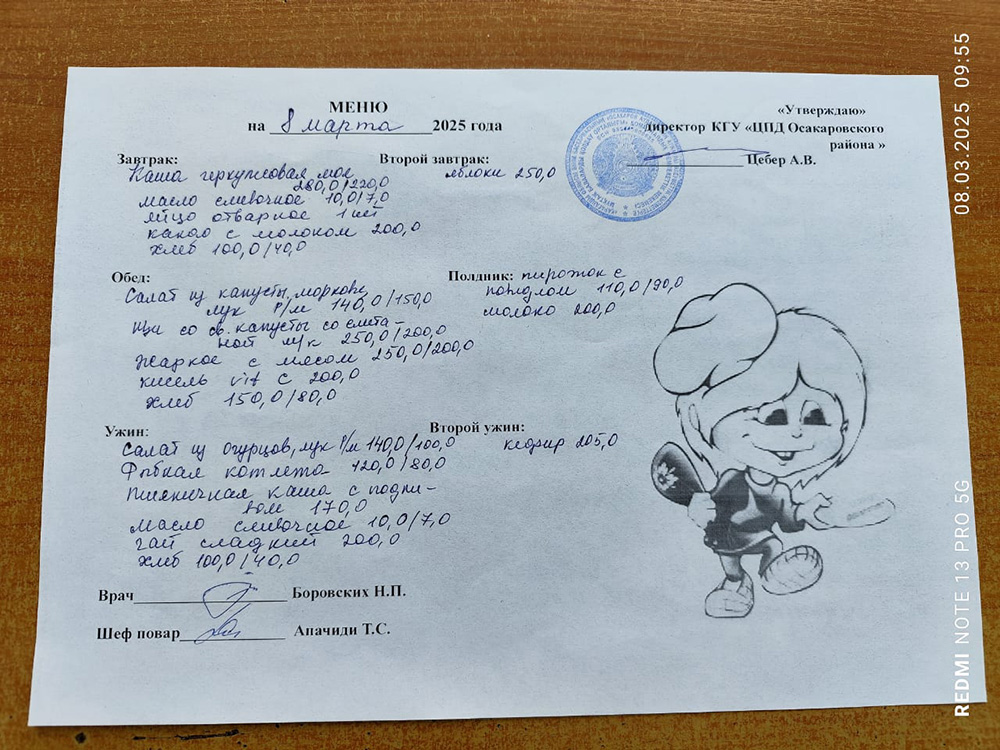 МЕНЮ
на 8 марта 2025 года
«Утверждаю»
директор КГУ «ЦПД Осакаровского
района »
Цебер А.В.
Завтрак:
Каша геркулесовая мол
280,0/220,0
масло сливочное 10,0/7,0
яйцо отварное 1
какао с молоком 200,0
хлеб 100,0/40,0
Второй завтрак:
яблоки 250,0
Обед:
Салат из капусты, моркови,
лук Р/м 140,0/150,0
Щи со св. капусты со смета-
ной м/к 250,0/200,0
Жаркое с мясом 250,0/200,0
кисель vit C 200,0
хлеб 150,0/80,0
Полдник: пирожок с
повидлом 110,0/90,0
молоко 200,0
Ужин:
Салат из огурцов, лук Р/м 140,0/100,0
Рыбная котлета 120,0/80,0
Пшеничная каша с подли-
вом 170,0
масло сливочное 10,0/7,0
чай сладкий 200,0
хлеб 100,0/40,0
Второй ужин:
кефир 205,0
Врач Боровских Н.П.
Шеф повар Апачиди Т.С.
REDMI NOTE 13 PRO 5G 08.03.2025 09:55